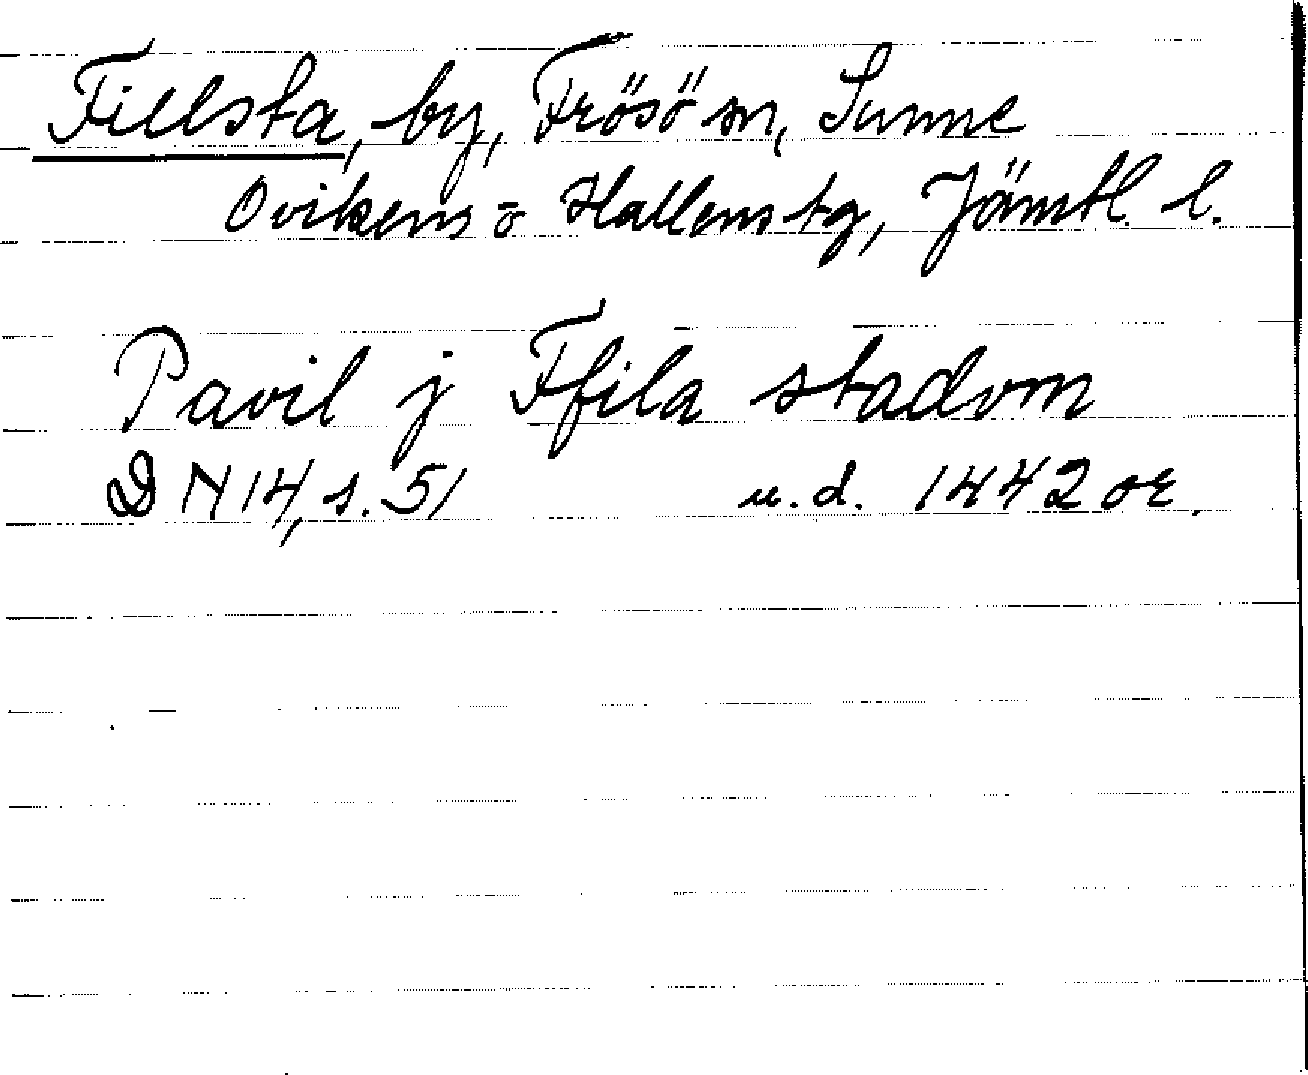 Fillsta, by, Frösö sn, Sunne
Ovikens o Hallens tg, Jämtl. l.
Pavil j Ffila stadom
DN 14, s. 51 u.d. 1442 or.